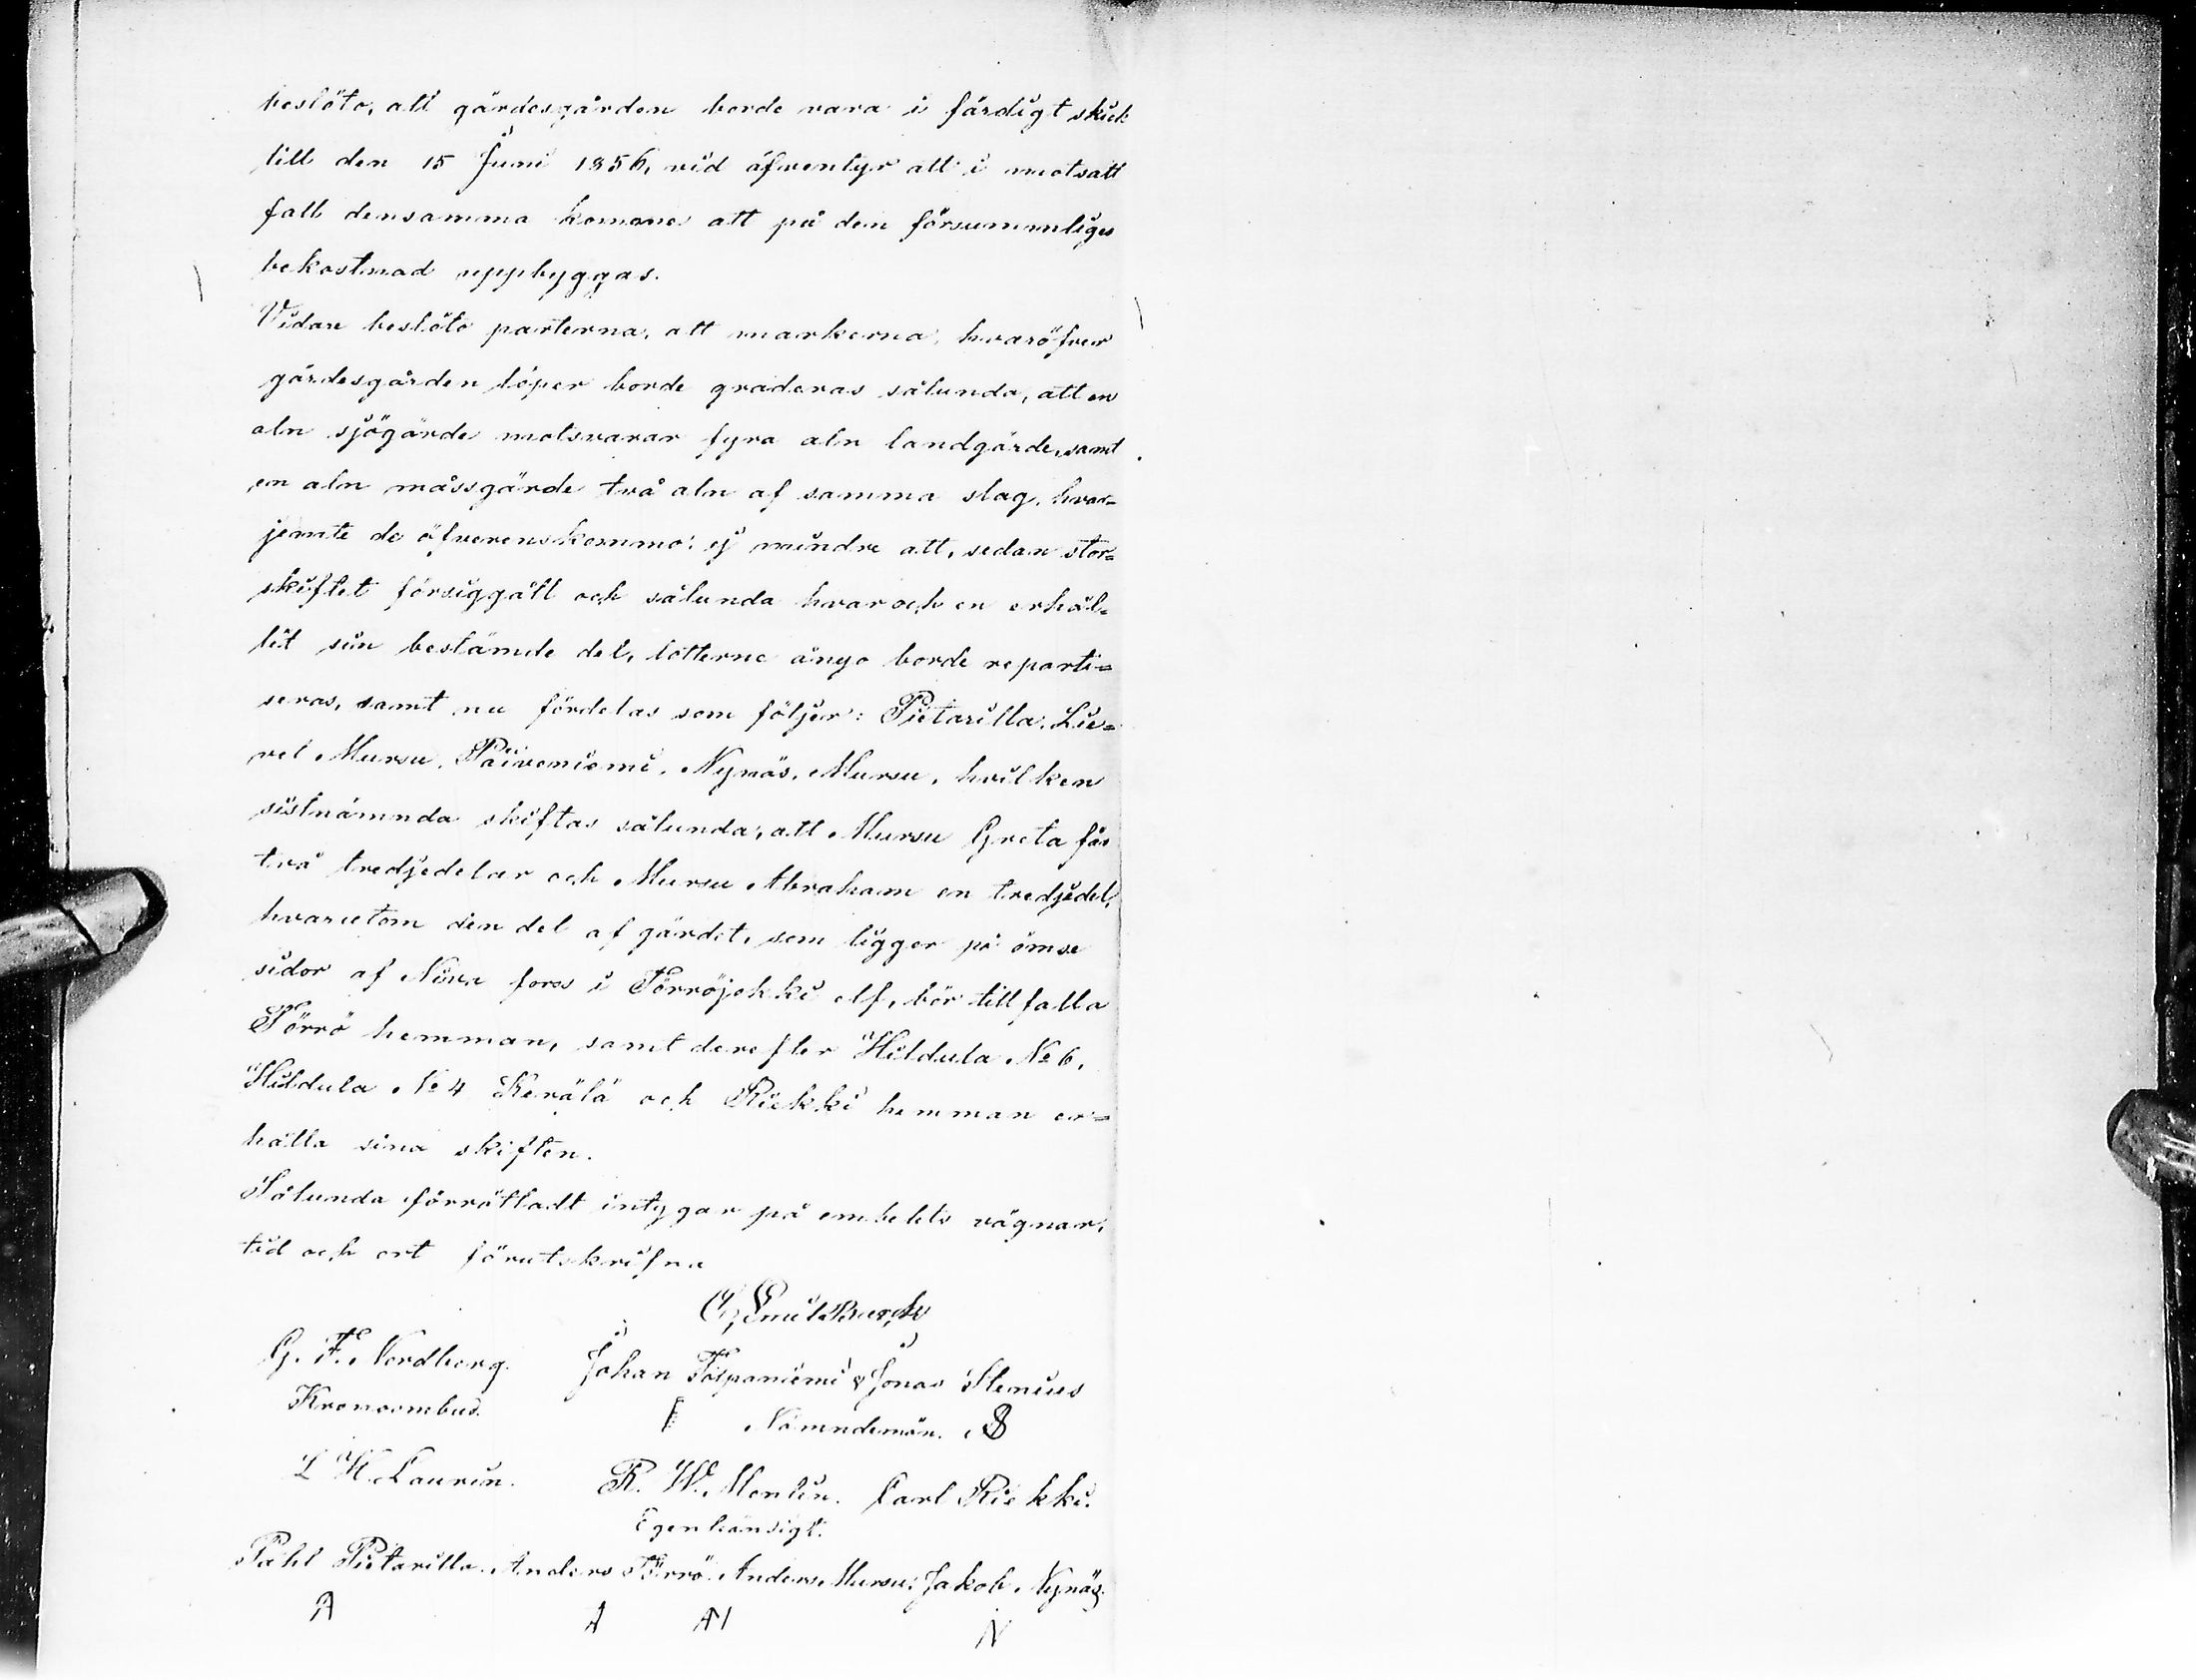 beslöto, att gärdesgården borde vara i färdigt skick
till den 15 Juni 1856, vid äfventyr att i motsatt
fall densamma komme att på den försummliges
bekostnad uppbyggas.
Vidare beslöto parterna, att markerna, hvaröfver
gärdesgården löper borde graderas sålunda, att en
aln sjögärde motsvarar fyra aln landgärde, samt
en aln måssgärde två aln af samma slag, hvar=
jemte de öfverenskommo: ej mindre att, sedan stor=
skiftet försiggått och sålunda hvar och en erhål=
lit sin bestämde del, lotterne ånyo borde reparti=
seras, samt nu fördelas som följer: Pietarilla, Lie=
vel Mursu, Päiveniemi, Nynäs, Mursu, hvilken
sistnämnda skiftas sålunda, att Mursu Greta får
två tredjedelar och Mursu Abraham en tredjedel,
hvarutom den del af gärdet, som ligger på ömse
sidor af Niva fors i Törröjokki elf, bör tillfalla
Törrö hemman, samt derefter Hildula No 6,
Hildula No 4 Kerälä och Riekki hemman er=
hålla sina skiften.
Sålunda förrättadt intygar på embetets vägnar,
tid och ort förutskrifna
Emil Burch
G. F. Nordberg. Johan Töspaniemi & Jonas Stenius
Kronoombud. Nämndemän.
L H. Laurin. R. W. Montin. Carl Riekki.
Egenhänsigt.
Påhl Pietarilla. Anders Törrö. Anders Mursu: Jakob Nynäs.
A A AM N